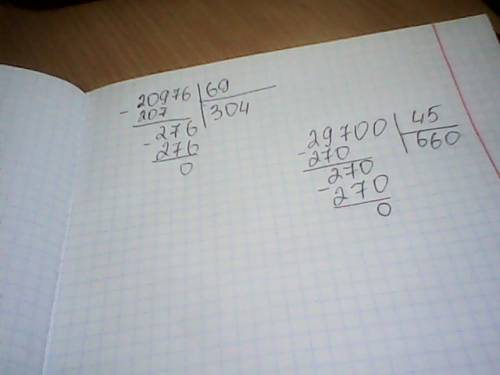 - 20976 | 69
207 | 304
276
- 276
0
29700 | 45
- 270 | 660
270
- 270
0